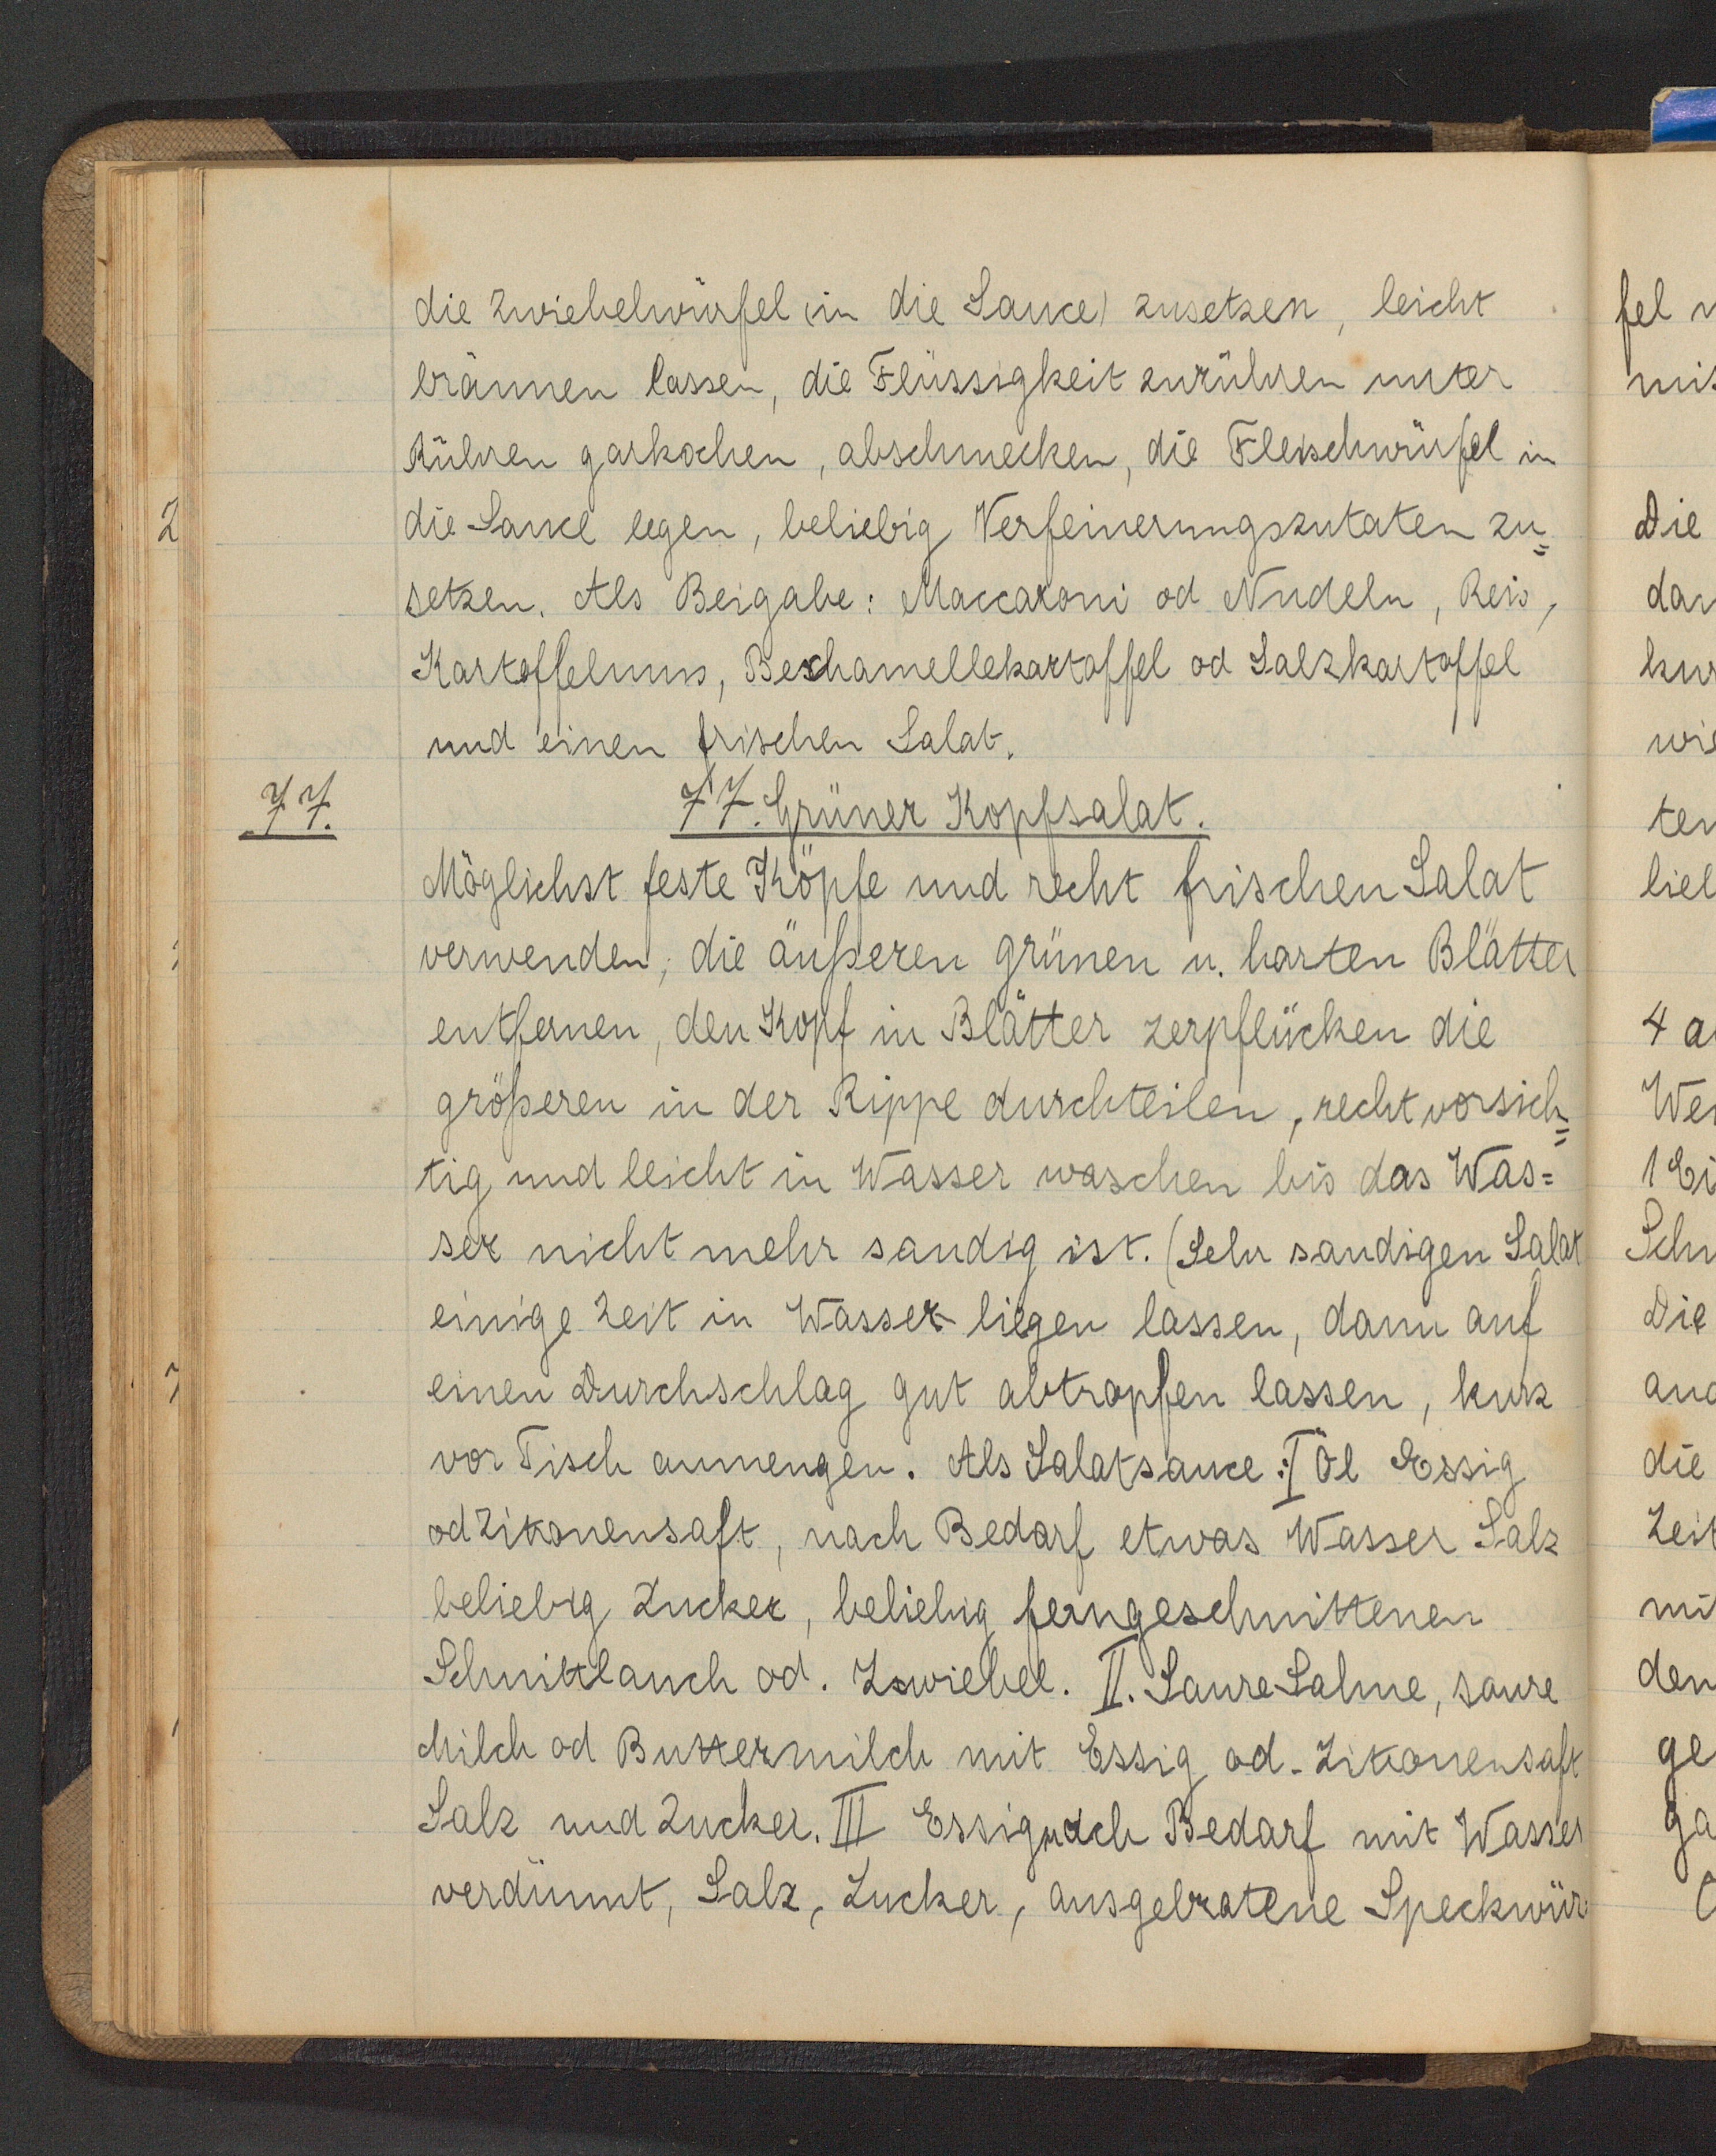 die Zwiebelwürfel (in die Sauce) zusetzen, leicht
bräunen lassen, die Flüssigkeit zurühren unter
Rühren garkochen, abschmecken, die Fleischwürfel in
die Sauce legen, beliebig Verfeinerungszutaten zu=
setzen. Als Beigabe: Maccaroni od Nudeln, Reis,
Kartoffelmus, Bechamellekartoffel od Salzkartoffel
und einen frischen Salat.
77.
77. Grüner Kopfsalat.
Möglichst feste Köpfe und recht frischen Salat
verwenden, die äußeren grünen u. harten Blätter
entfernen, den Kopf in Blätter zerpflücken die
größeren in der Rippe durchteilen, recht vorsich=
tig und leicht in Wasser waschen bis das Was=
ser nicht mehr sandig ist. (Sehr sandigen Salat
einige Zeit in Wasser liegen lassen, dann auf
einen Durchschlag gut abtropfen lassen, kurz
vor Tisch anmengen. Als Salatsauce: I Öl Essig
od Zitronensaft, nach Bedarf etwas Wasser Salz
beliebig Zucker, beliebig feingeschnittenen
Schnittlauch od. Zwiebel. II. Saure Sahne, saure
Milch od Buttermilch mit Essig od. Zitronensaft
Salz und Zucker. III Essig nach Bedarf mit Wasser
verdünnt, Salz, Zucker, ausgebratene Speckwür